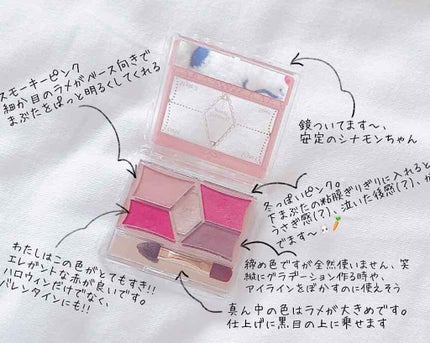 スモーキーピンク
細か目のラメがベース向きで
まぶたをぱっと明るくしてくれる
鏡ついてます〜、
安定のシナモンちゃん
冬っぽいピンク。
下まぶたの粘膜ぎりぎりに入れると
うさぎ感(?)、泣いた後感(?)、が
でます〜
わたしはこの色がとてもすき!!
エレガントな赤が良いです。
ハロウィンだけでなく、
バレンタインにも!!
締め色ですが全然使いません、笑
縦にグラデーション作る時や、
アイラインをぼかすのに使えそう
真ん中の色はラメが大きめです。
仕上げに黒目の上に乗せます